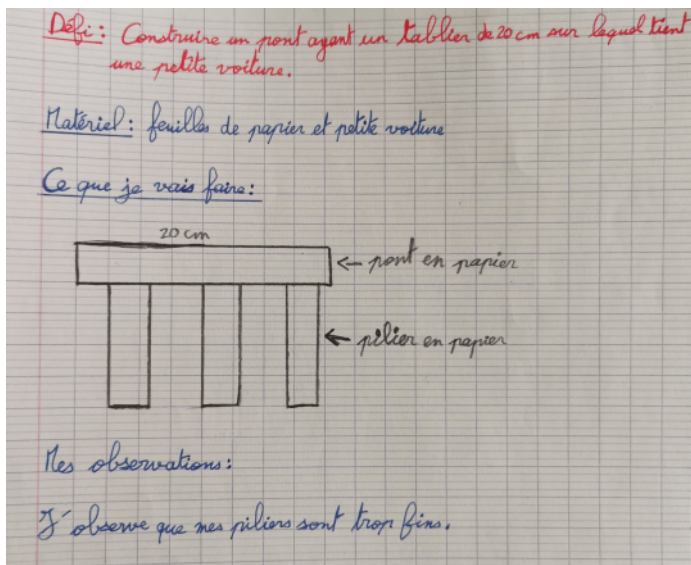 Défi : Construire un pont ayant un tablier de 20 cm sur lequel tient
une petite voiture.
Matériel : feuilles de papier et petite voiture
Ce que je vais faire :
20 cm
← pont en papier
← pilier en papier
Mes observations :
J'observe que mes piliers sont trop fins.